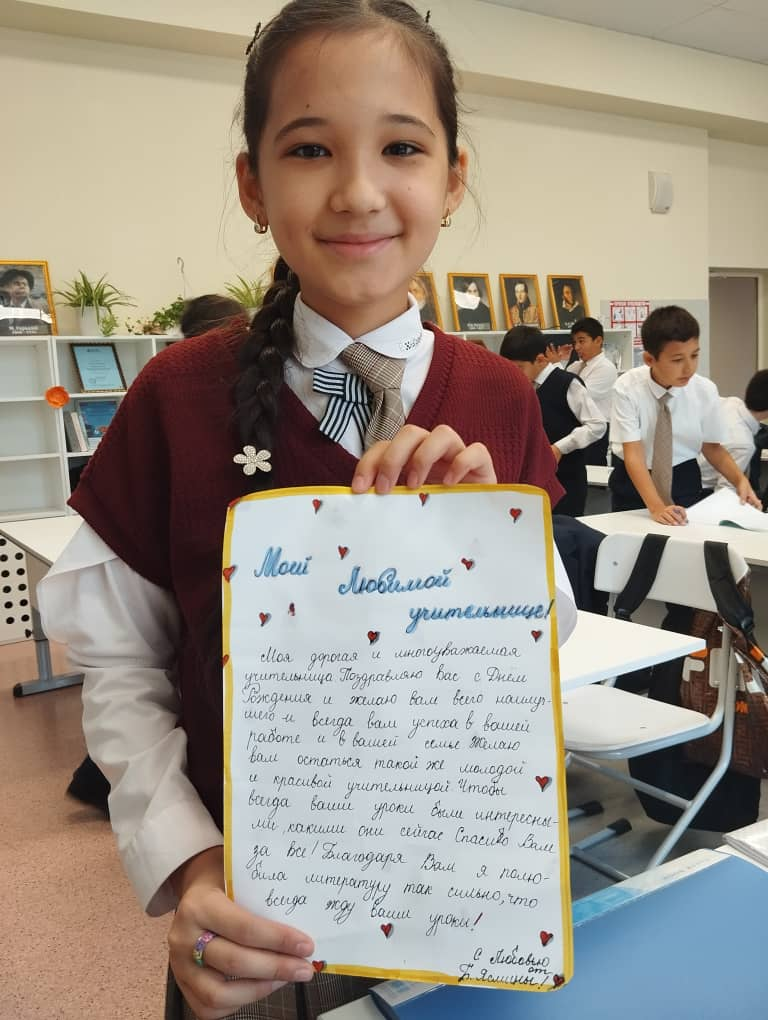 М. Горький
Моей Любимой
учительнице!
Моя дорогая и многоуважаемая
учительница Поздравляю Вас с Днём
Рождения и желаю вам всего наилуч-
шего и всегда вам успеха в вашей
работе и в вашей семье Желаю
вам остаться такой же молодой
и красивой учительницой. Чтобы
всегда ваши уроки были интересны-
ми, какими они сейчас Спасибо Вам
за все! Благодаря Вам я полю-
била литературу так сильно, что
всегда жду ваши уроки!
С Любовью
от
Б. Ясмины!